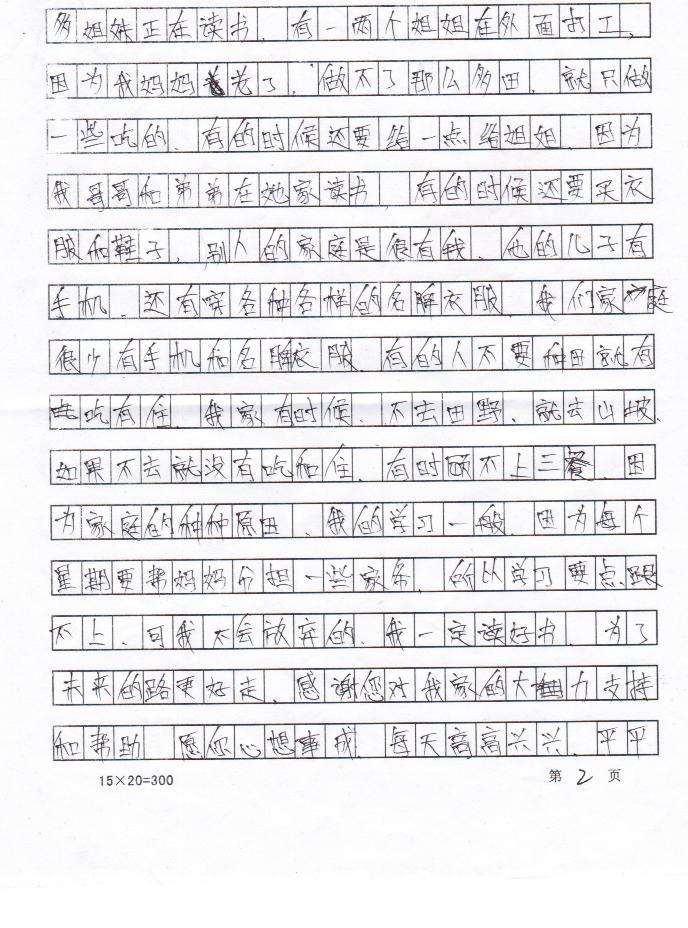 多姐妹正在读书，有一两个姐姐在外面打工，
因为我妈妈老了，做不了那么多田，就只做
一些吃的，有的时候还要给一点给姐姐，因为
我哥哥和弟弟在她家读书，有的时候还要买衣
服和鞋子，别人的家庭是很有钱，他的儿子有
手机，还有穿各种各样的名牌衣服，我们家庭
很少有手机和名牌衣服，有的人不要种田就有
吃有住，我家有时候，不去田野，就去山坡，
如果不去就没有吃和住，有时顾不上三餐，因
为家庭的种种原因，我的学习一般，因为每个
星期要帮妈妈分担一些家务，所以学习要点跟
不上，可我不会放弃的，我一定读好书，为了
未来的路更好走，感谢您对我家的大力支持
和帮助 愿您心想事成 每天高高兴兴，平平
15×20=300
第 2 页